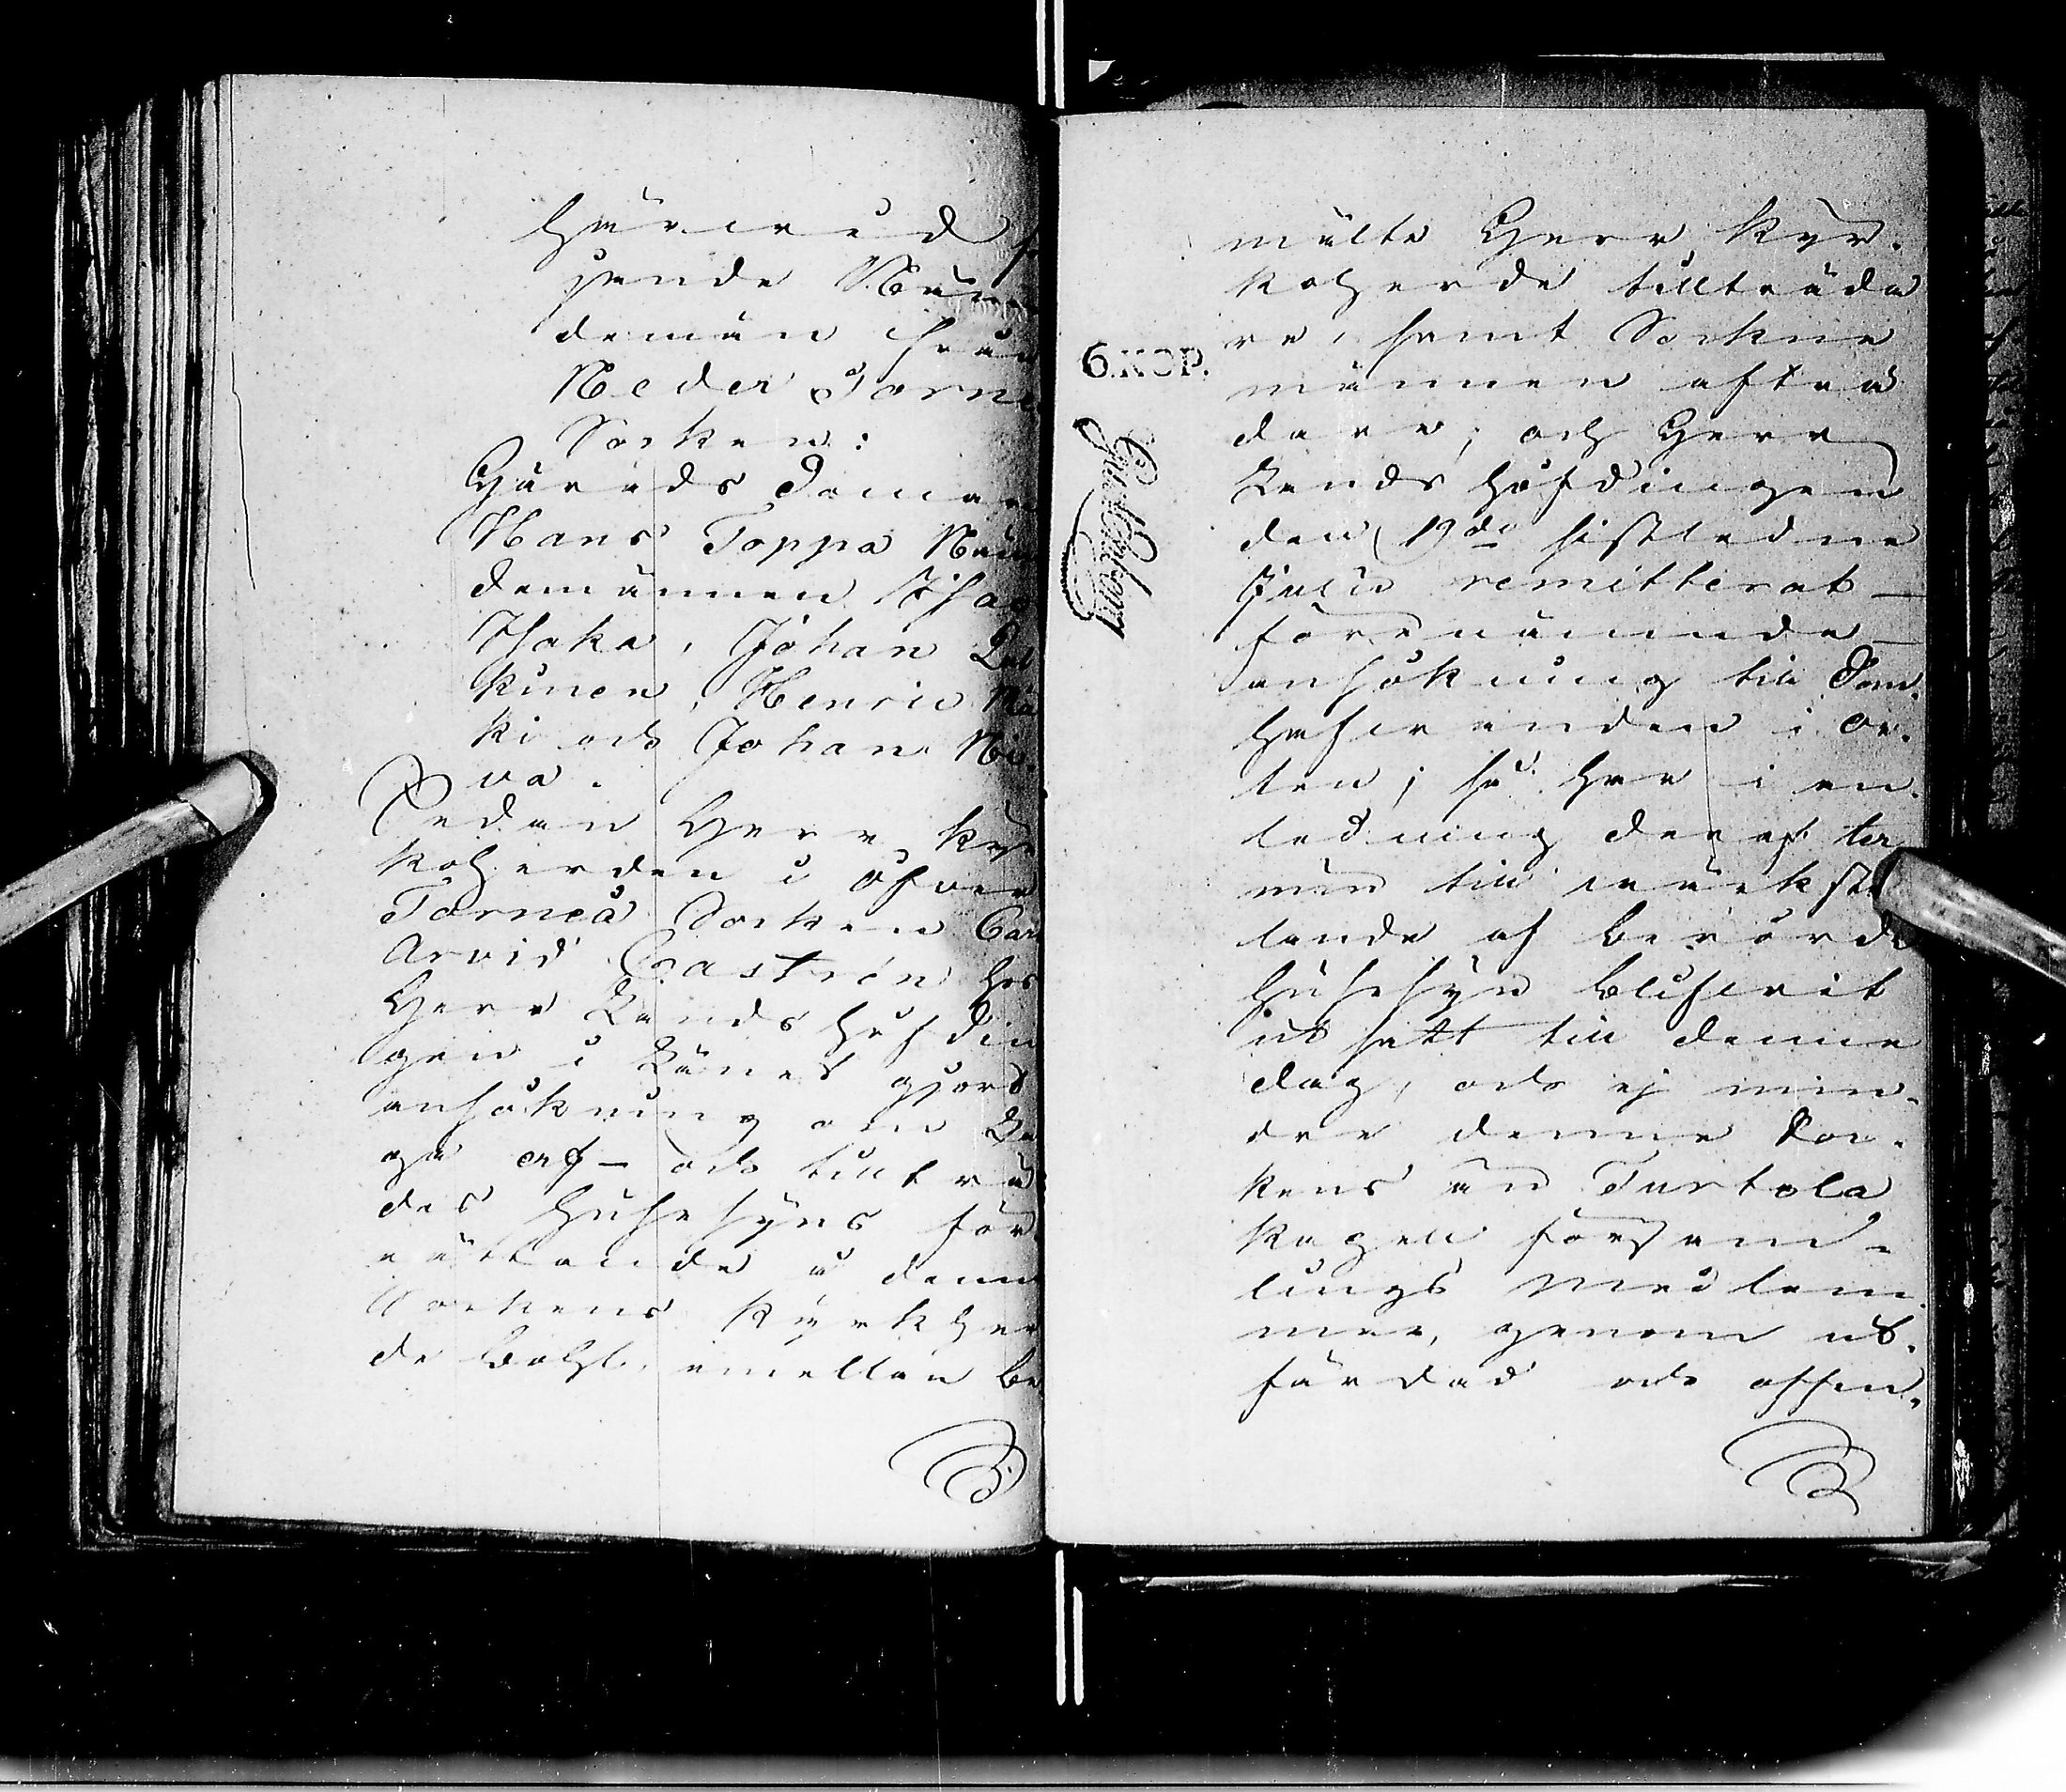 Härvid
gande Näm
demän från
Neder Torne
Socken:
Härads Domare
Hans Toppa Näm
demännen Isac
Isaka, Johan
kinen, Henric
ki och Johan Ni
va.
Sedan Herr Kyr
koherden i Öfver
Torneå Socken Carl
Arvid Castrén hos
Herr Landshöfdin
gen i Länet gjort
ansökning om La
ga af- och tillträ
des Husesyns för
rättande å denne
Sockens Kyrkher
de Bohl, emellan be
mälte Herr Kyr-
koherde tillträda
re, samt Sockne
männen afträ
dare; och Herr
Landshöfdingen
den 19de sistledne
Julii remitterat
förenämnde
ansökning till Dom-
hafvanden i or-
ten; så har i an-
ledning deraf ter
min till värkstäl
lande af berörde
Husesyn blifvit
utsatt till denne
dag, och ej min-
dre denne Soc-
kens än Turtola
Kapell församm-
lings Medlem-
mar, genom ut-
färdad och offen-
6.KOP.